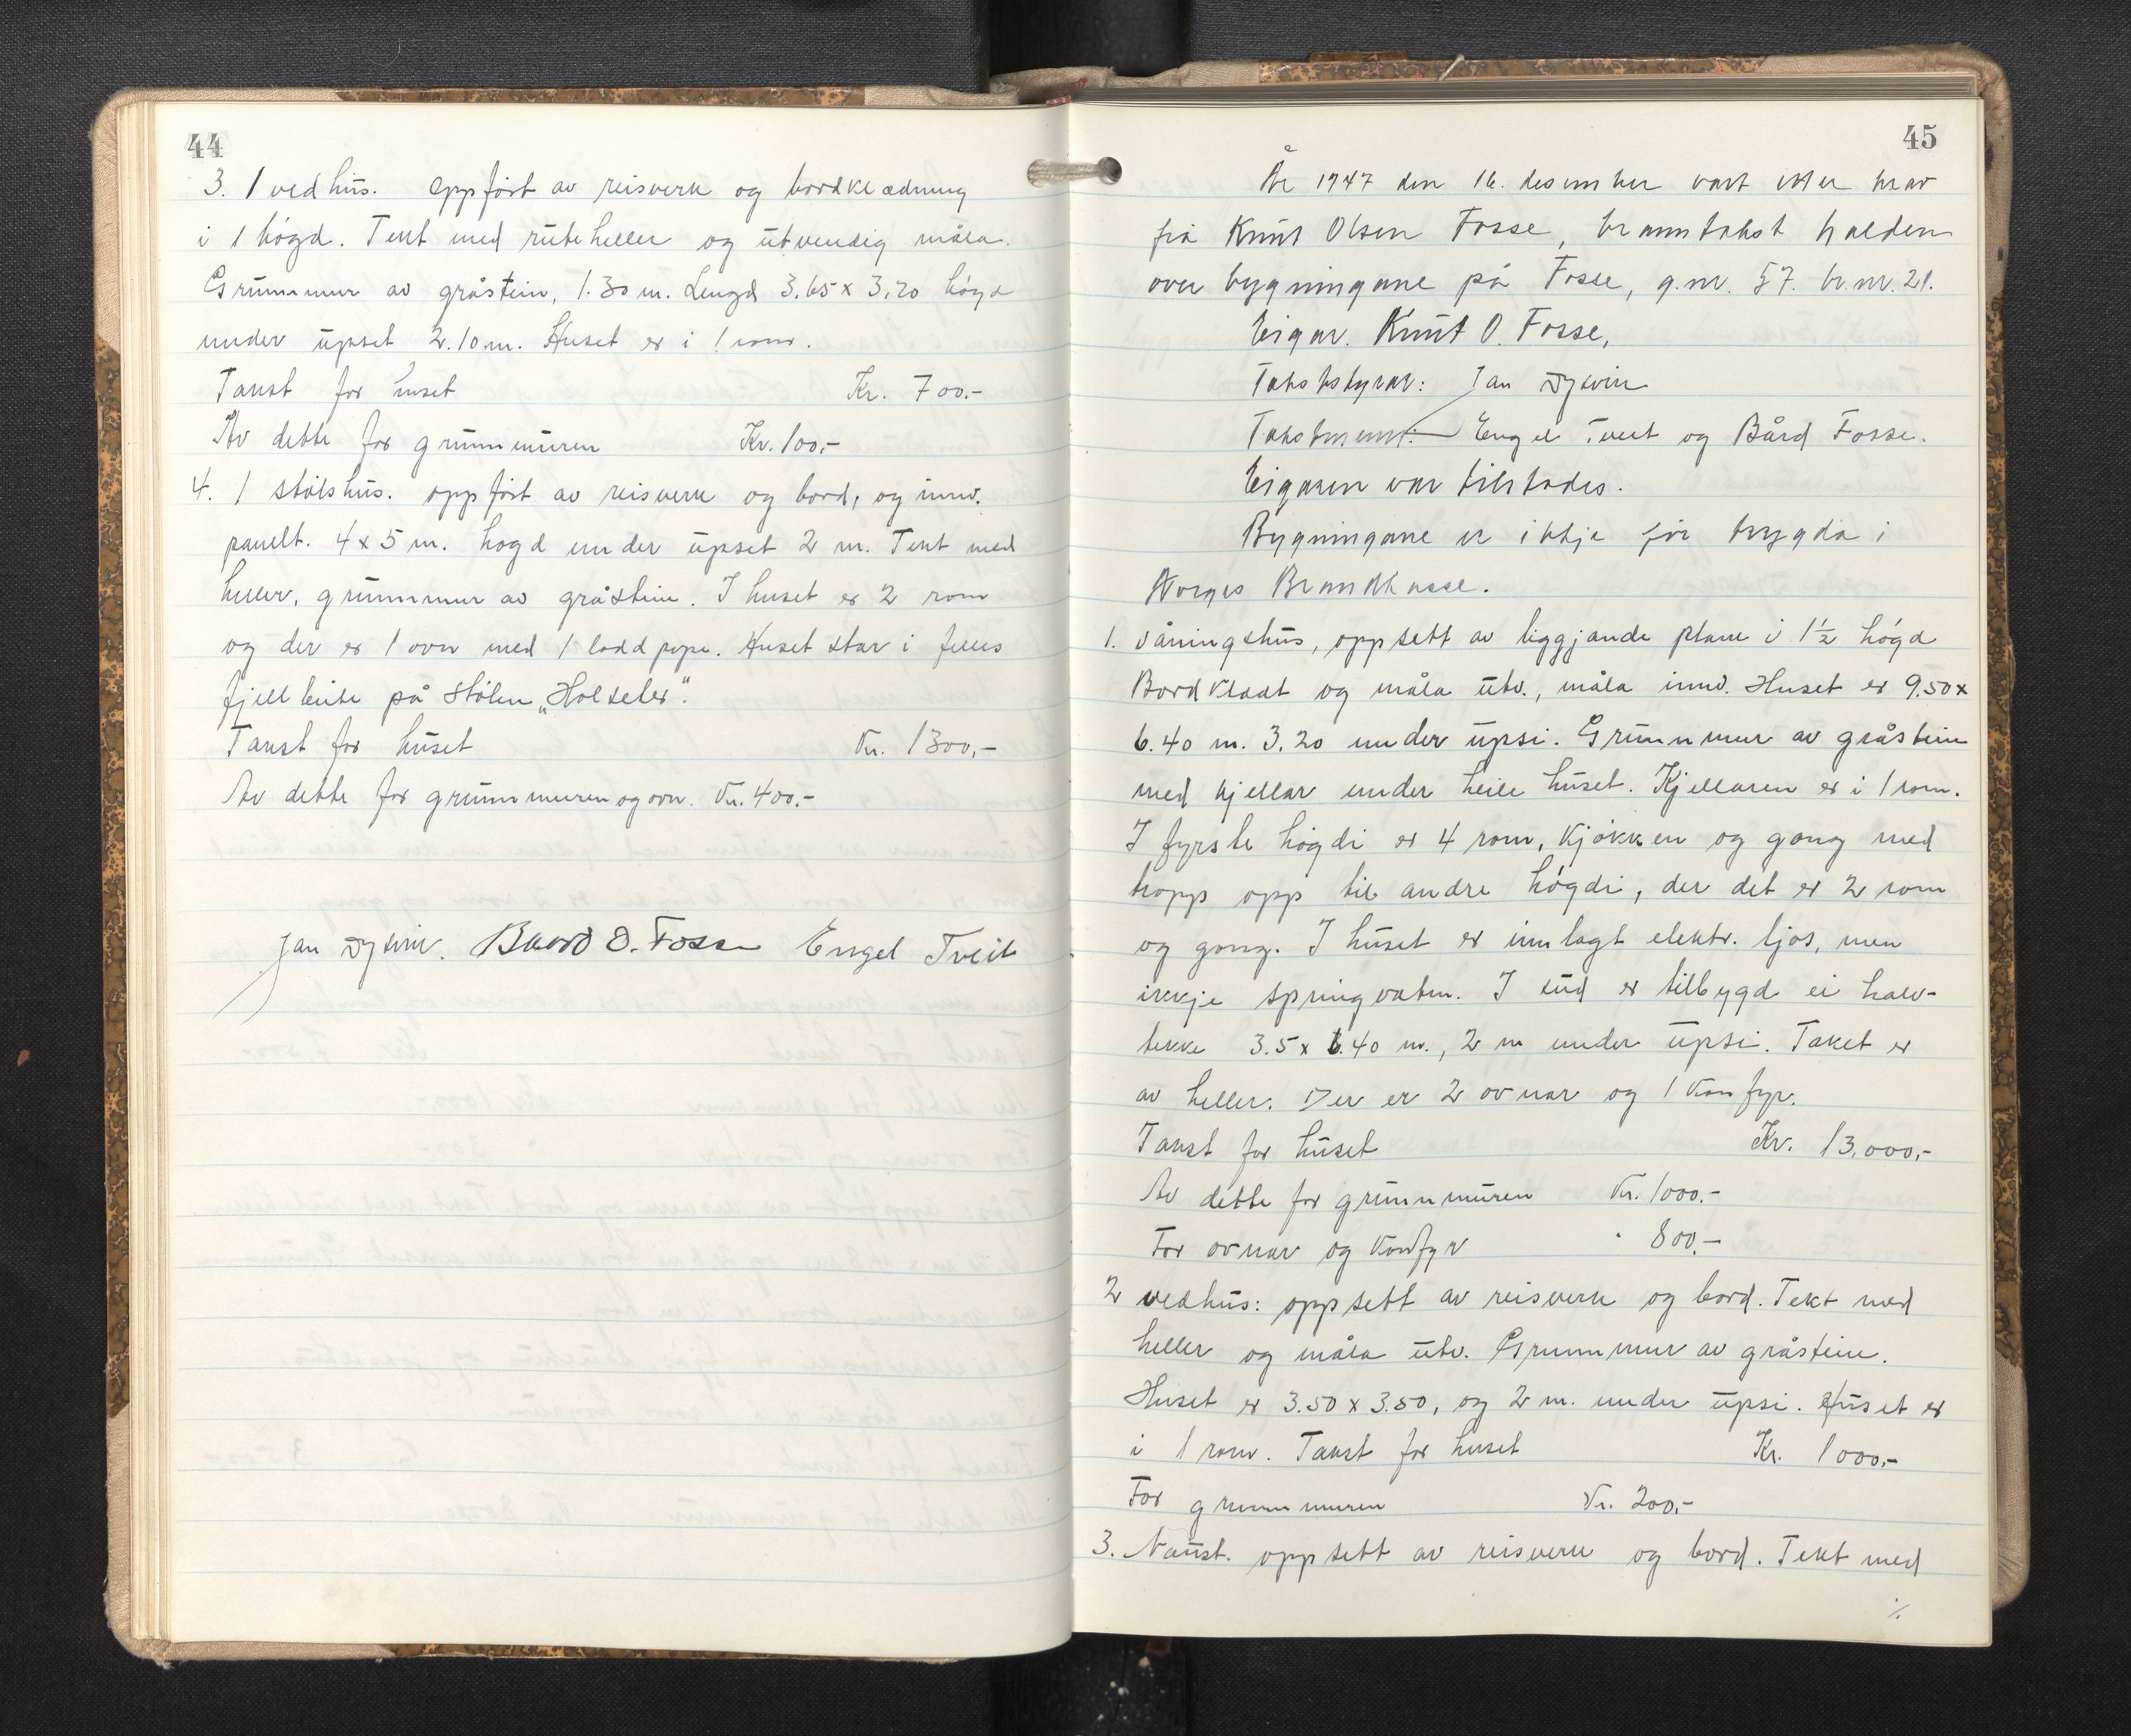 44
3. 1 vedhus. Oppført av reisverk og bordklædning
i 1 høgd. Tekt med ruteheller og utvendig måla.
Grunnmur av gråstein, 1.30 m. Lengd 3.65 x 3.20 høgd
under upset 2.10 m. Huset er i 1 rom.
Takst for huset Kr. 700.-
Av dette for grunnmuren Kr. 100,-
4. 1 stølshus. oppført av reisverk og bord, og innv.
panelt. 4 x 5 m. høgd under upset 2 m. Tekt med
heller, grunnmur av gråstein. I huset er 2 rom
og der er 1 ovn med 1 lodd pipe. Huset står i felles
fjellbeite på stølen „Holseter".
Takst for huset Kr. 1300,-
Av dette for grunnmuren og ovn. Kr. 400.-
Jan Baard O. Fosse Engel Tveit
45
År 1947 den 16. desember vart etter krav
frå Knut Olsen Fosse, branntakst halden
over bygningane på Fosse, g.nr. 57. br.nr. 21.
Eigar. Knut O. Fosse,
Takstskyrar: Jan
Takstmenn: Engel Tveit og Bård Fosse.
Eigaren var tilstades.
Bygningane er ikkje før trygda i
Norges Brandkasse.
1. Våningshus, oppsett av liggjande plank i 1½ høgd
Bordkledt og måla utv., måla innv. Huset er 9.50 x
6.40 m. 3.20 under upsi. Grunnmur av gråstein
med kjellar under heile huset. Kjellaren er i 1 rom.
I fyrste høgdi er 4 rom, kjøkken og gang med
tropp opp til andre høgdi, der det er 2 rom
og gang. I huset er innlagt elektr. ljos, men
ikkje springvatn. I sud er tilbygd ei halv-
tekke 3.5 x 6.40 m., 2 m under upsi. Taket er
av heller. Der er 2 ovnar og 1 komfyr.
Takst for huset Kr. 13,000,-
Av dette for grunnmuren Kr. 1000.-
For ovnar og komfyr " 800.-
2 vedhus: oppsett av reisverk og bord. Tekt med
heller og måla utv. Grunnmur av gråstein.
Huset er 3.50 x 3.50, og 2 m. under upsi. Huset er
i 1 rom. Takst for huset Kr. 1000,-
For grunnmuren Kr. 200,-
3. Naust. oppsett av reisverk og bord. Tekt med
./.